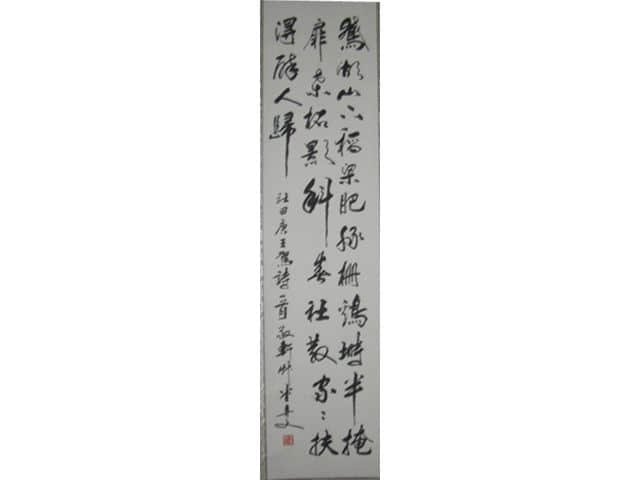 鵞湖山下稻梁肥豚柵鷄塒半掩
扉桑柘影斜春社散家〻扶
得醉人歸
社日唐王駕詩一首